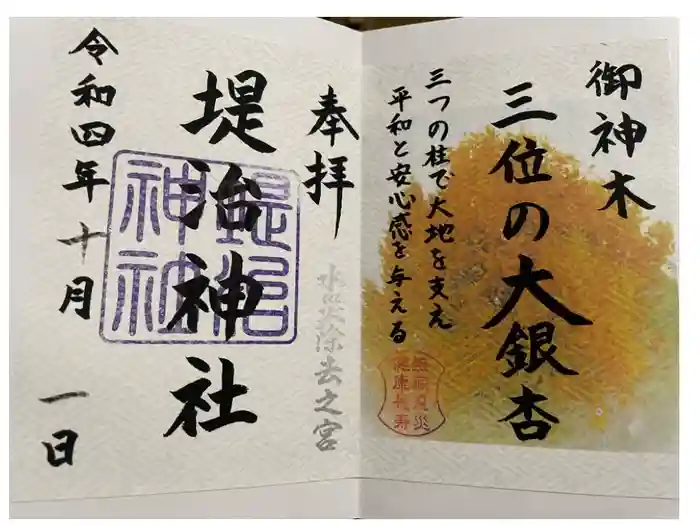 御神木
三位の大銀杏
三つの柱で大地を支え
平和と安心感を与える
無病息災
健康長寿
奉拝
水災除去之宮
堤治神社
堤治神社
令和四年十月一日